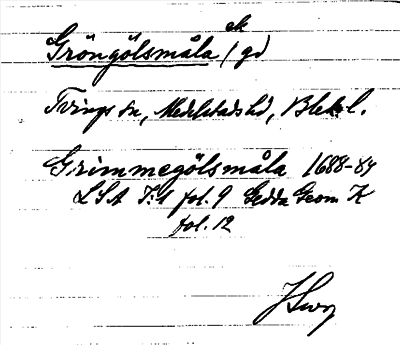 ek
Gröngölsmåla / gd
Tvings sn, Medelstads hd, Blek l.
Grimmegölsmåla 1688-89
LSA I:1 fol. 9 Gedda Geom K
fol. 12